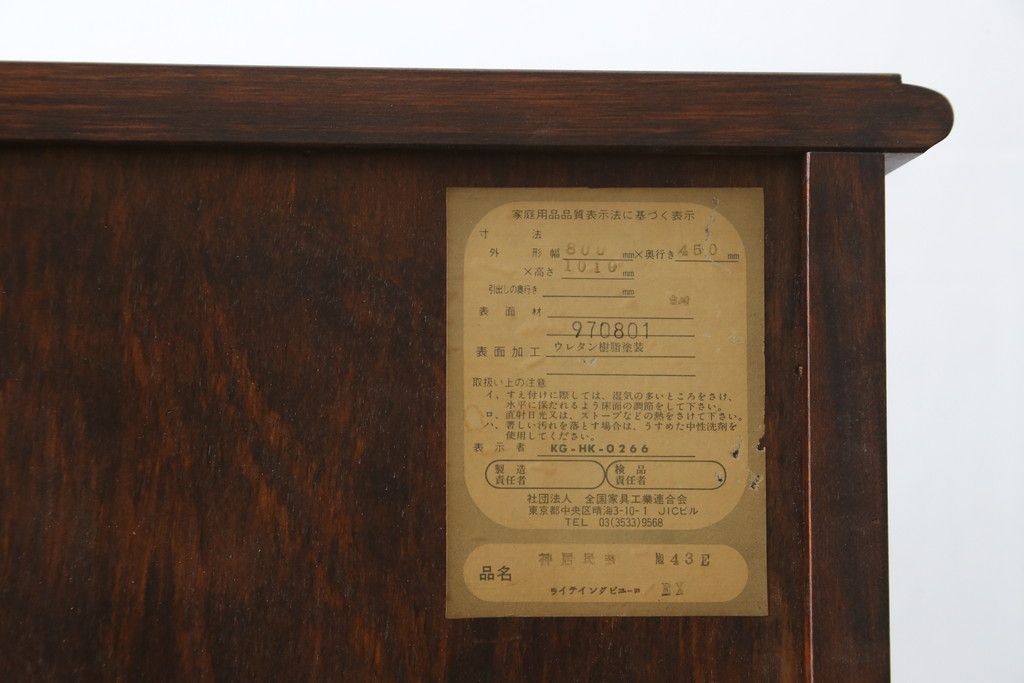 家庭用品品質表示法に基づく表示
寸法
外形 幅 800 mm×奥行き 450 mm
×高さ 1010 mm
引出しの奥行き mm
表面材
970801
表面加工 ウレタン樹脂塗装
取扱い上の注意
イ、すえ付けに際しては、湿気の多いところをさけ、
水平に保たれるよう床面の調節をして下さい。
ロ、直射日光又は、ストーブなどの熱をさけて下さい。
ハ、著しい汚れを落とす場合は、うすめた中性洗剤を
使用してください。
表示者 KG-HK-0266
製造責任者 検品責任者
社団法人 全国家具工業連合会
東京都中央区晴海3-10-1 JICビル
TEL 03(3533)9568
品名 民 43E
ライティングビューロ EX